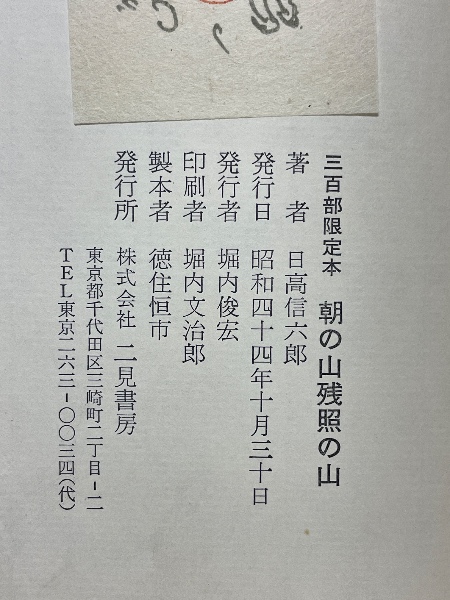 三百部限定本 朝の山残照の山
著者 日高信六郎
発行日 昭和四十四年十月三十日
発行者 堀内俊宏
印刷者 堀内文治郎
製本者 徳住恒市
発行所 株式会社 二見書房
東京都千代田区三崎町二丁目-二
TEL東京二六三-〇〇三四(代)